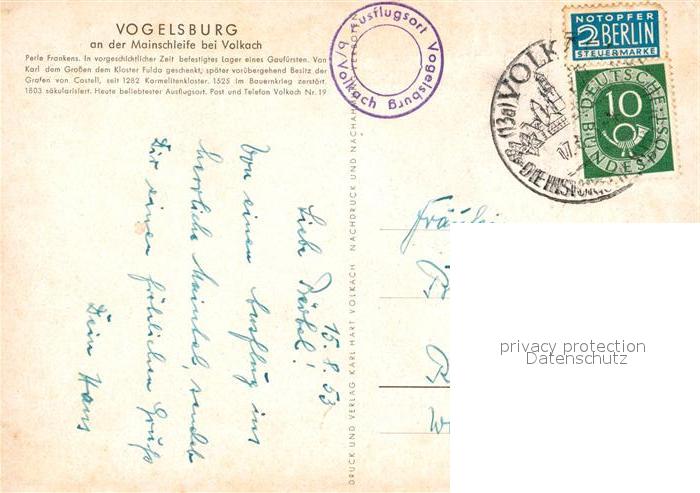 VOGELSBURG
an der Mainschleife bei Volkach
Perle Frankens. In vorgeschichtlicher Zeit befestigtes Lager eines Gaufürsten. Von
Karl dem Großen dem Kloster Fulda geschenkt, später vorübergehend Besitz der
Grafen von Castell, seit 1282 Karmelitenkloster. 1525 im Bauernkrieg zerstört.
1803 säkularisiert. Heute beliebtester Ausflugsort. Post und Telefon Volkach Nr. 19
Ausflugsort Vogelsburg
b/Volkach
NOTOPFER
2 BERLIN
STEUERMARKE
DEUTSCHE
BUNDESPOST
10
(13a) VOLKA
DIE
17.
15.8.53
Liebe Bärbel!
Von einem Ausflug ins
herrliche Maintal, sendet
Dir einen fröhlichen Gruß
Dein Hans
DRUCK UND VERLAG KARL HART VOLKACH NACHDRUCK UND NACHAHM VERBOTEN
Fräulein
privacy protection
Datenschutz